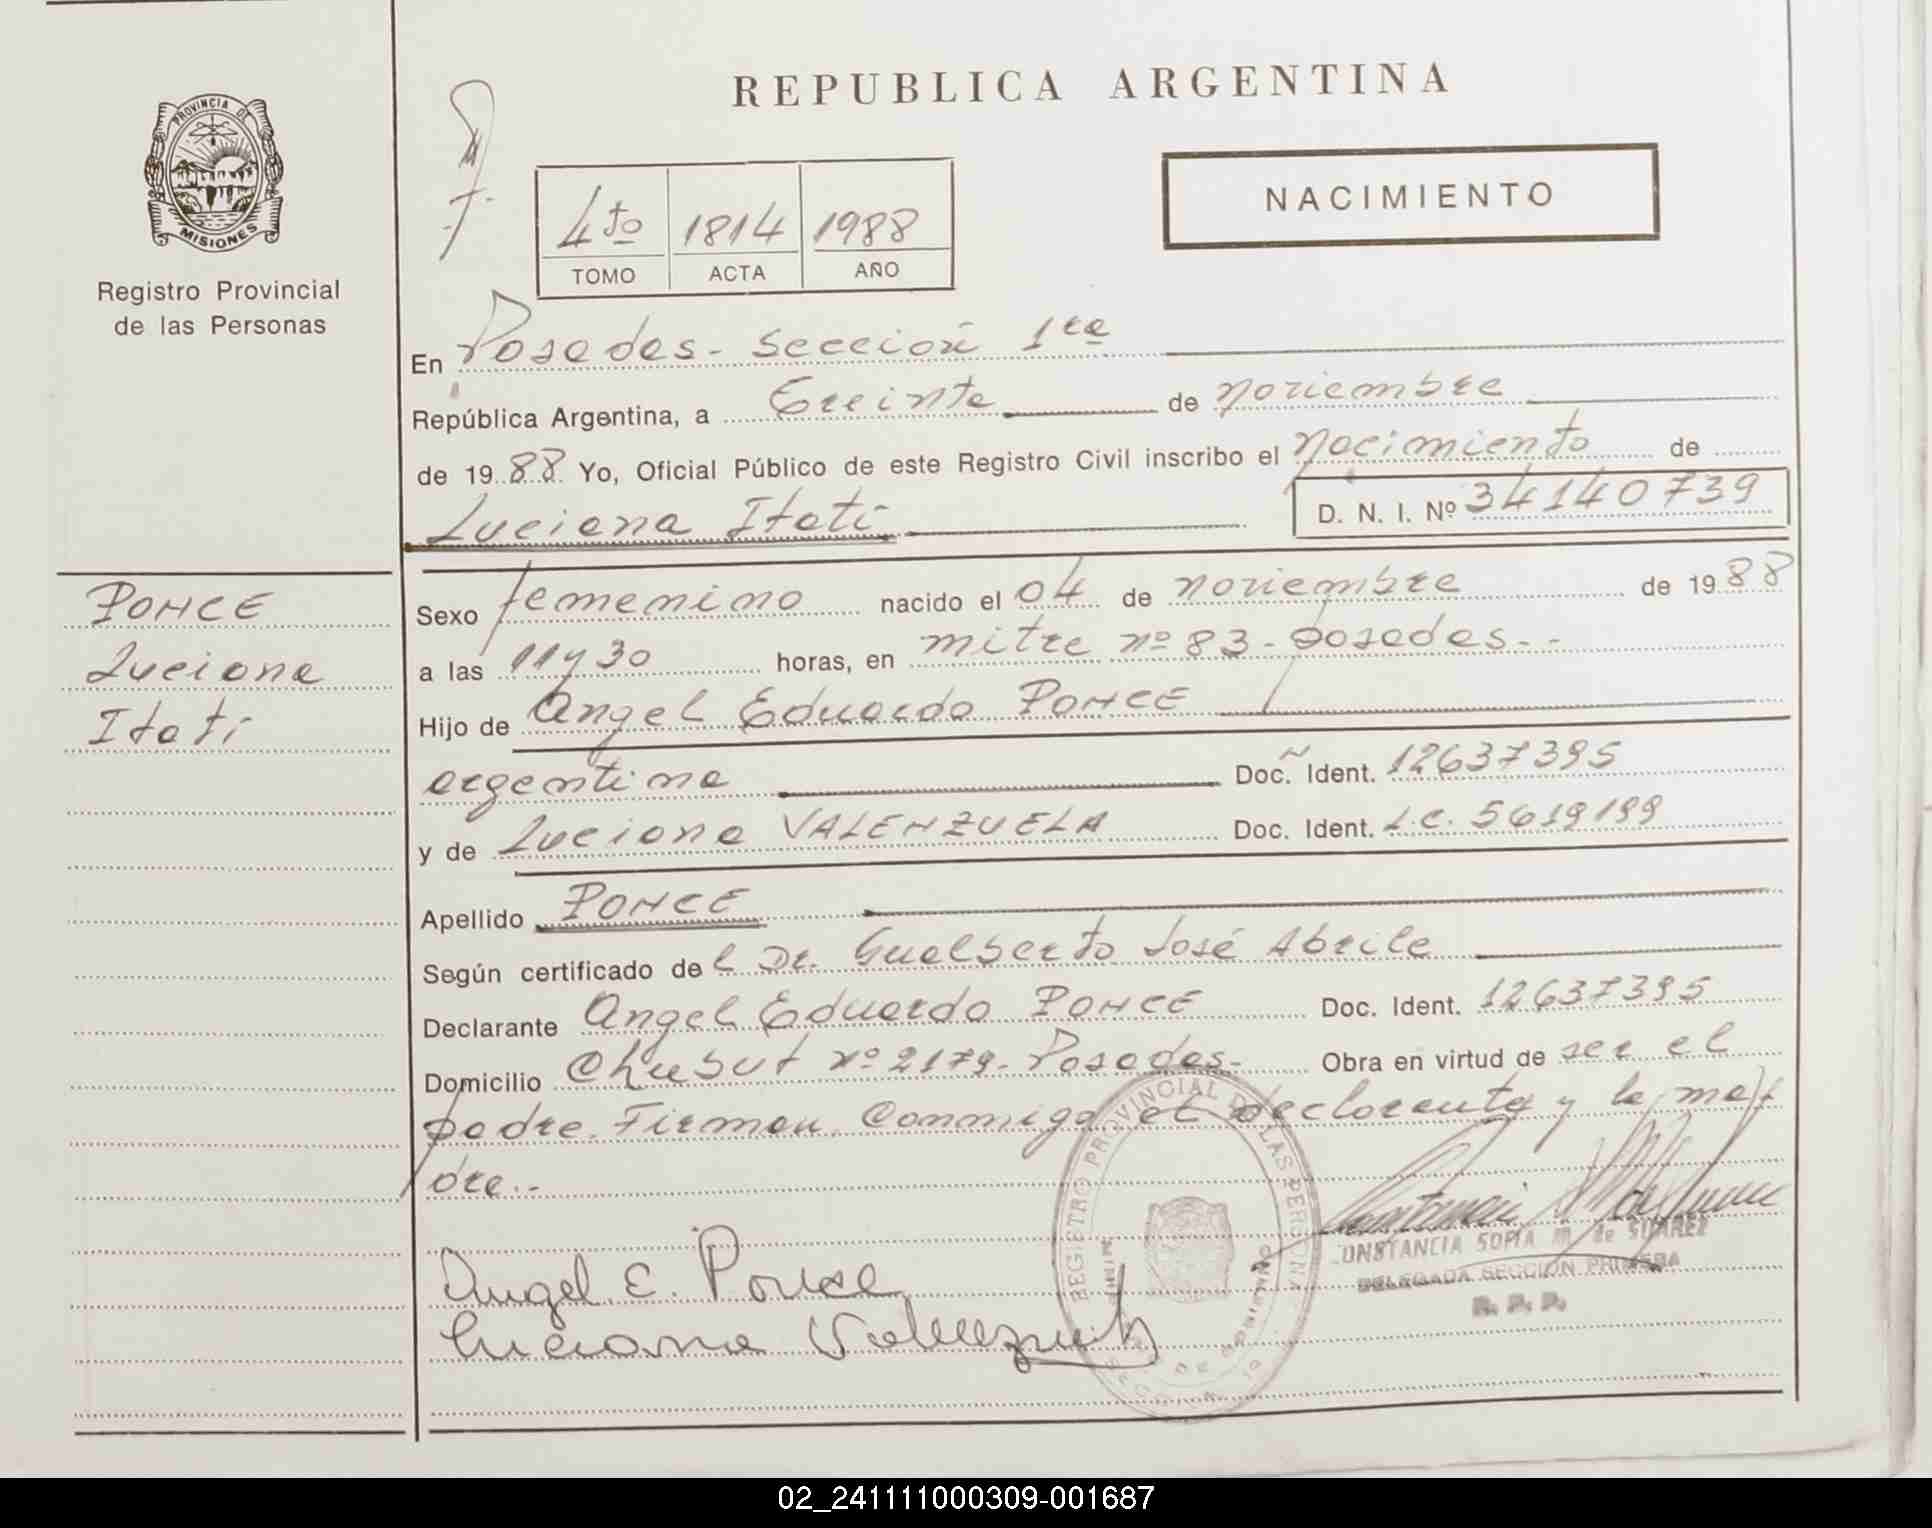 REPUBLICA ARGENTINA
NACIMIENTO
PROVINCIA DE
MISIONES
Registro Provincial
de las Personas
4to 1814 1988
TOMO ACTA AÑO
En Posadas - Sección 1ra
República Argentina, a Treinta de noviembre
de 1988 Yo, Oficial Público de este Registro Civil inscribo el nacimiento de
Luciana Itatí D. N. I. Nº 34140739
PONCE
Luciana
Itatí
Sexo femenino nacido el 04 de noviembre de 1988
a las 11 y 30 horas, en mitre nº 83 - Posadas.-
Hijo de Angel Eduardo PONCE
argentina Doc. Ident. 12637395
y de Luciana VALENZUELA Doc. Ident. L.C. 5619199
Apellido PONCE
Según certificado del Dr. Gualberto José Abrile
Declarante Angel Eduardo PONCE Doc. Ident. 12637395
Domicilio Chubut nº 2179 - Posadas.- Obra en virtud de ser el
padre. Firman conmigo el declarante y la ma-
dre.-
Angel E. Ponce
Luciana Valenzuela
REGISTRO PROVINCIAL DE LAS PERSONAS
ONSTANCIA SOFIA M de SUAREZ
DELEGADA SECCION PRIMERA
R. P. P.
02_241111000309-001687